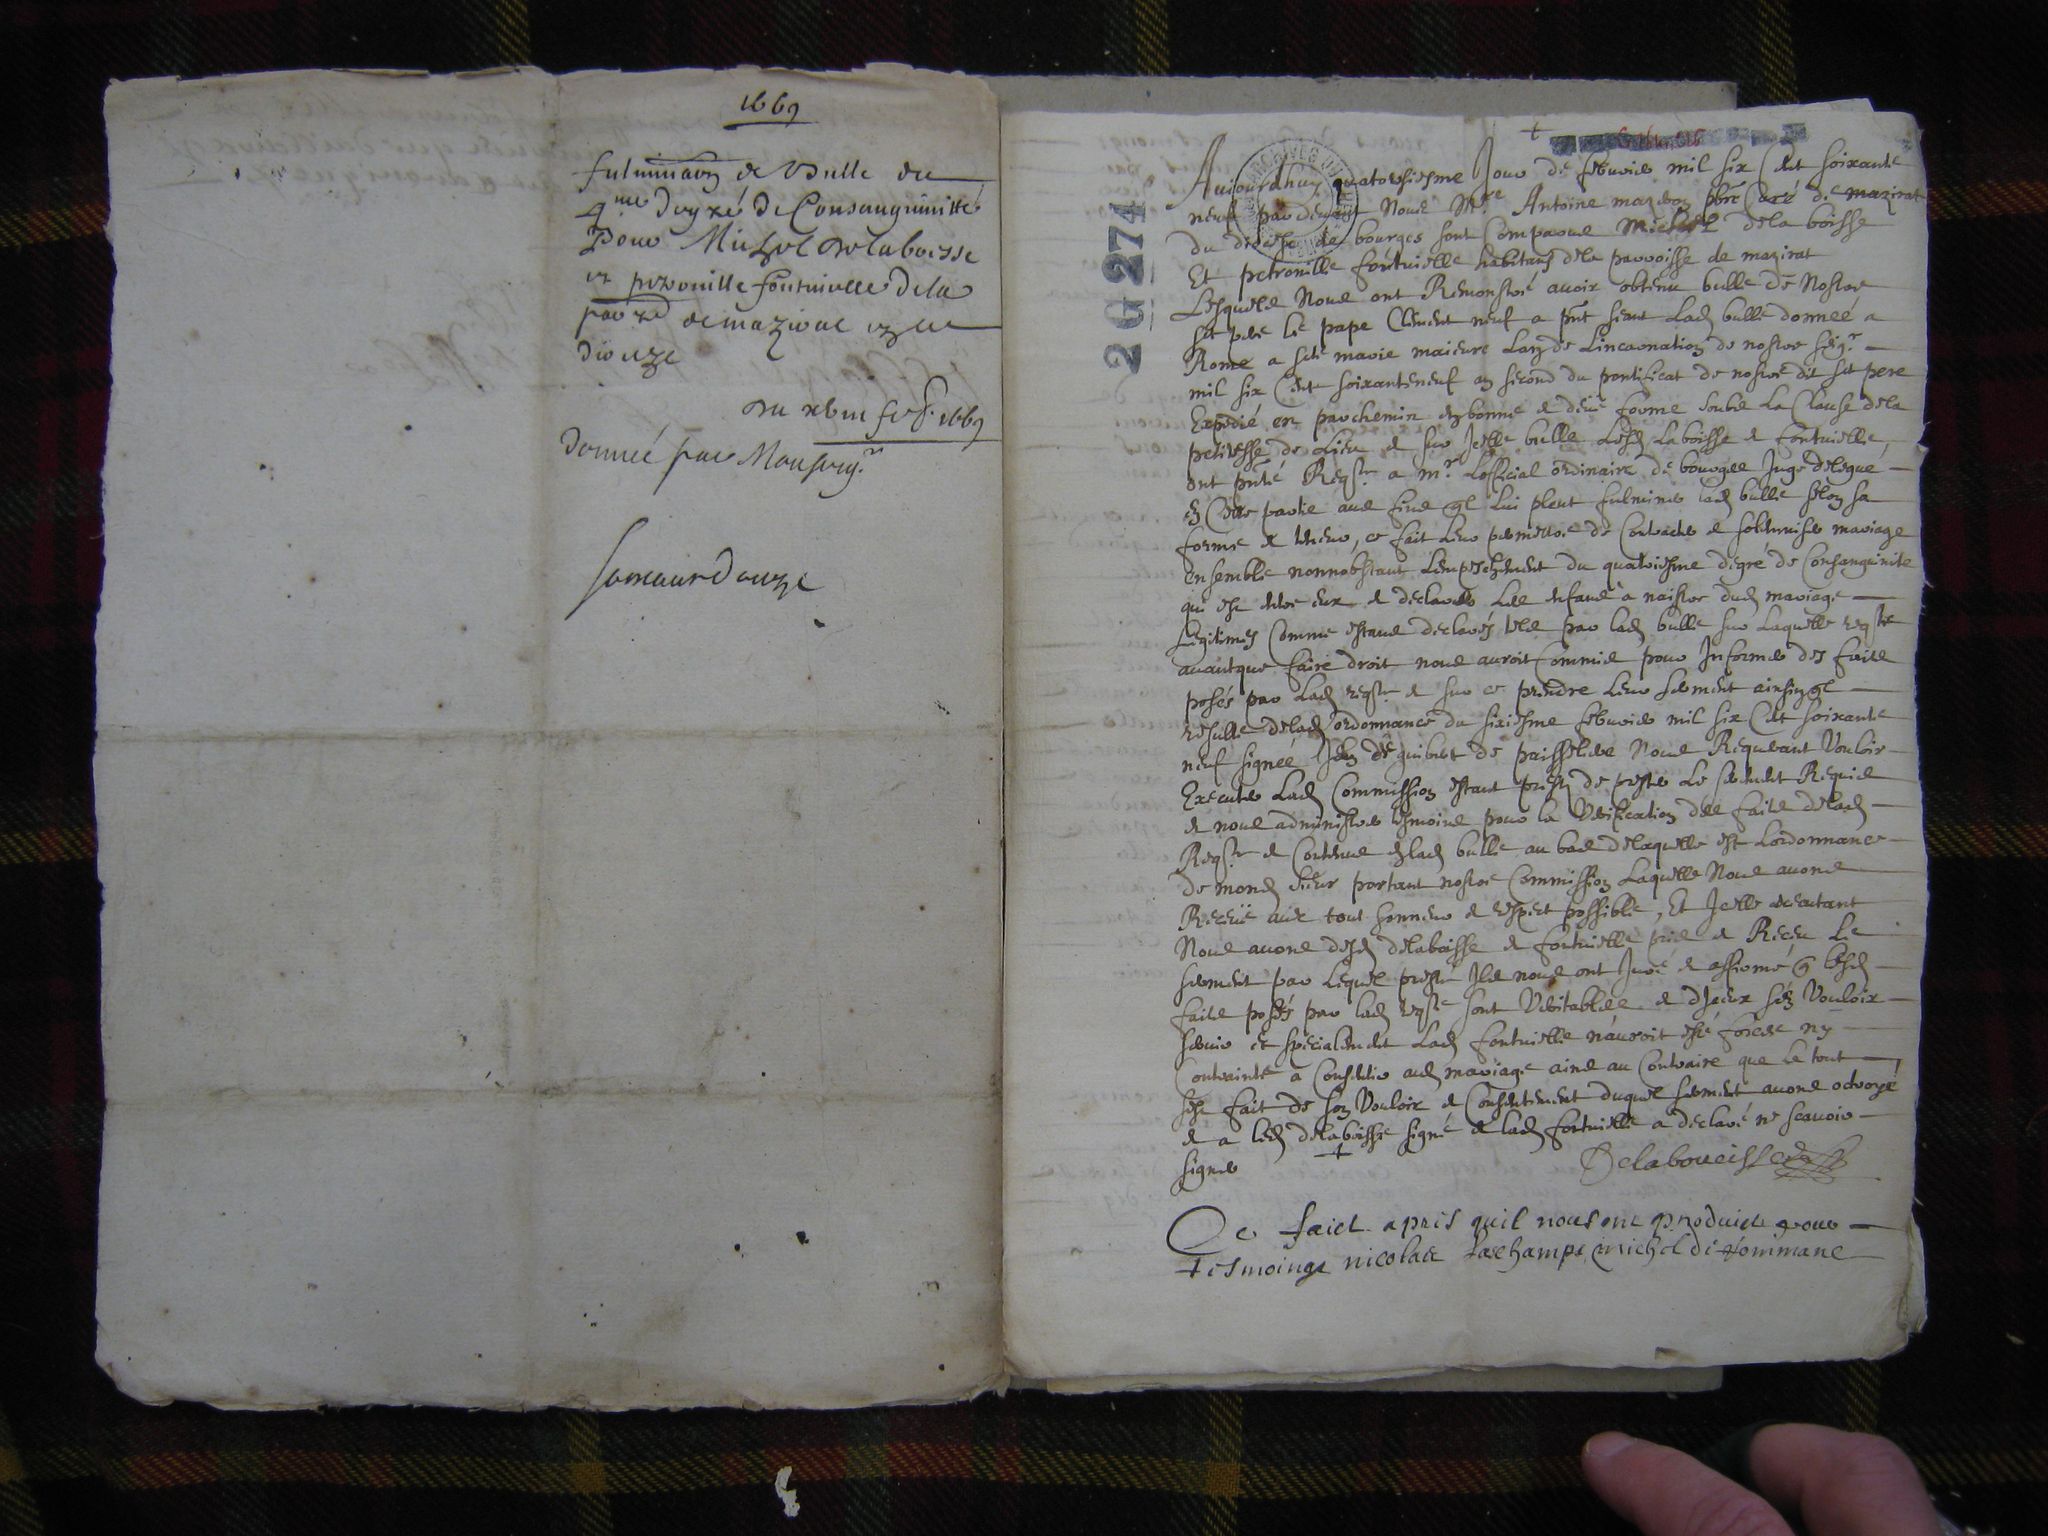 1669
fulminaon de Bulle du
4.me degré de Consanguinitté
Pour Michel delaboisse
et petronille fontnielle de la
parr.e de mazirat et ce
diouze
du xbiii feb. 1669
donnée par Monseig.r
2 G 274
ARCHIVES DU
Aujourdhuy quatorsiesme Jour de febvrier mil six Cent soixante
neuf par devant Nous M.re Antoine mazedon pbre Curé de mazirat
du diocese de bourges sont Comparus Michel dela boisse
Et petronille fontnielle habitans dela parroisse de mazirat
Lesquels Nous ont Remonstré avoir obtenu bulle de Nostre
st pere le pape Clement neuf a pnt seant Lad bulle donneé a
Rome a ste marie maieure Lan de Lincarnation de nostre seig.r
mil six Cent soixanteneuf an second du pontificat de nostre dit st pere
Expedié en parchemin en bonne et deüe forme soubs La Clause dela
petitesse de Lieu et sur Jcelle bulle Lesd Laboisse et fontnielle
ont pnté Reqste a m.r Lofficial ordinaire de bourges Juge delegué
en Cette partie aux fins ql Lui pleut fulminer lad bulle selon sa
forme et teneur, ce fait Leur permettre de Contracter et solemniser mariage
ensemble nonnobstant Lempeschement du quatriesme degré de Consanguinite
qui est entre eux et declarer Les enfans a naistre dud mariage
Legitimes Comme estans declarés tels par lad bulle sur Laquelle reqste
avantque faire droit nous auroit Commis pour Informer des faits
posés par Lad reqste et sur ce prendre Leur serment ainsin ql
resulte delad ordonnance du sixiesme febvrier mil six Cent soixante
neuf signée Jean de guibert de paissel Nous Requerant Vouloir
Executer Lad Commission estant prests de prester Le serment Requis
et nous administrer tesmoins pour la Verification des faits delad
Reqste et Contenus en lad bulle au bas delaquelle est Lordonnance
de mond sieur portant nostre Commission Laquelle Nous avons
Receüe avec tout honneur et respect possible, Et Jcelle executant
Nous avons desd delaboisse et fontnielle pris et Receu Le
serment par Lequel presté Jls nous ont Juré et affirmé q lesd
faits posés par lad reqste sont Veritables et d'Jceux sen Vouloir
servir et specialement Lad fontnielle n'auroit esté forcée ny
Contrainte a Consentir aud mariage ains au Contraire que le tout
sest fait de son Vouloir et Consentement duquel serment avons octroyé
et a led delaboisse signé et lad fontnielle a declaré ne scavoir
signer
Delaboueisse
Ce faict apres quil nous ont produict pour
tesmoings nicolas michel de